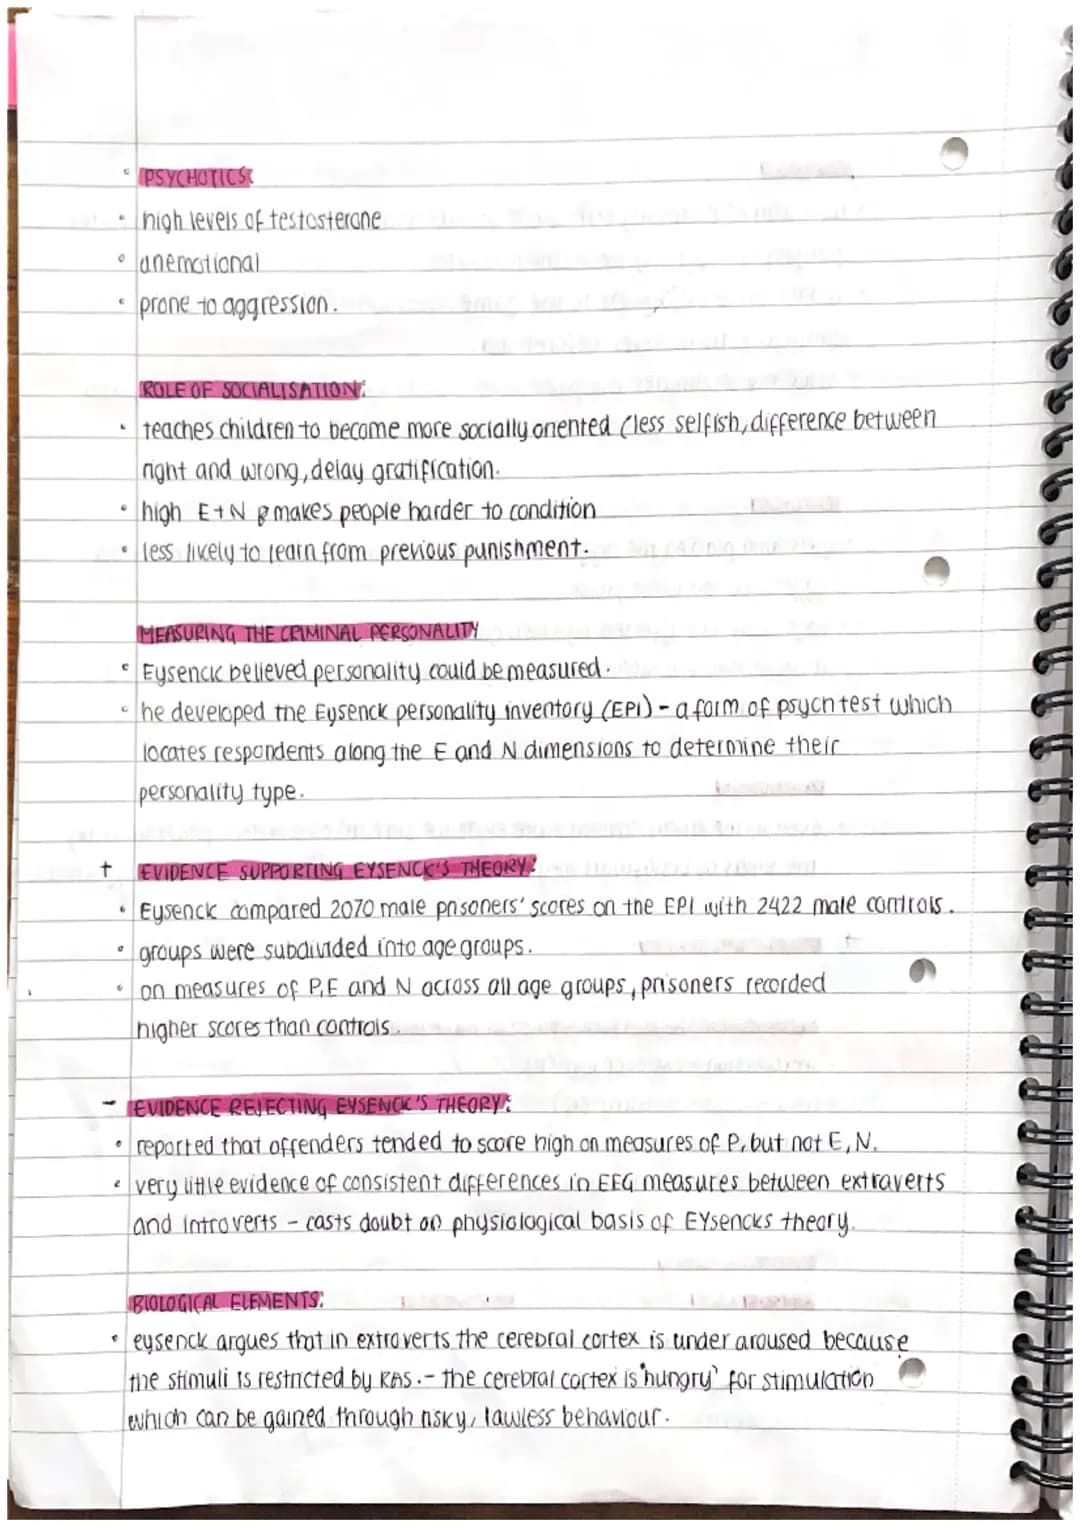 • PSYCHOTICS:
• high levels of testosterone
• anemotional
• prone to aggression.
ROLE OF SOCIALISATION:
• teaches children to become more socially oriented (less selfish, difference between
right and wrong, delay gratification.
• high E+N makes people harder to condition
• less likely to learn from previous punishment.
MEASURING THE CRIMINAL PERSONALITY
• Eysenck believed personality could be measured.
• he developed the Eysenck personality inventory (EPI) - a form of psych test which
locates respondents along the E and N dimensions to determine their
personality type.
+ EVIDENCE SUPPORTING EYSENCK'S THEORY:
• Eysenck compared 2070 male prisoners' scores on the EPI with 2422 male controls.
• groups were subdivided into age groups.
• on measures of P,E and N across all age groups, prisoners recorded
higher scores than controls.
- EVIDENCE REJECTING EYSENCK'S THEORY:
• reported that offenders tended to score high on measures of P, but not E, N.
• very little evidence of consistent differences in EEG measures between extraverts
and introverts - casts doubt on physiological basis of EYsencks theory.
BIOLOGICAL ELEMENTS:
• eysenck argues that in extraverts the cerebral cortex is under aroused because
the stimuli is restricted by RAS. - the cerebral cortex is 'hungry' for stimulation
which can be gained through risky, lawless behaviour.